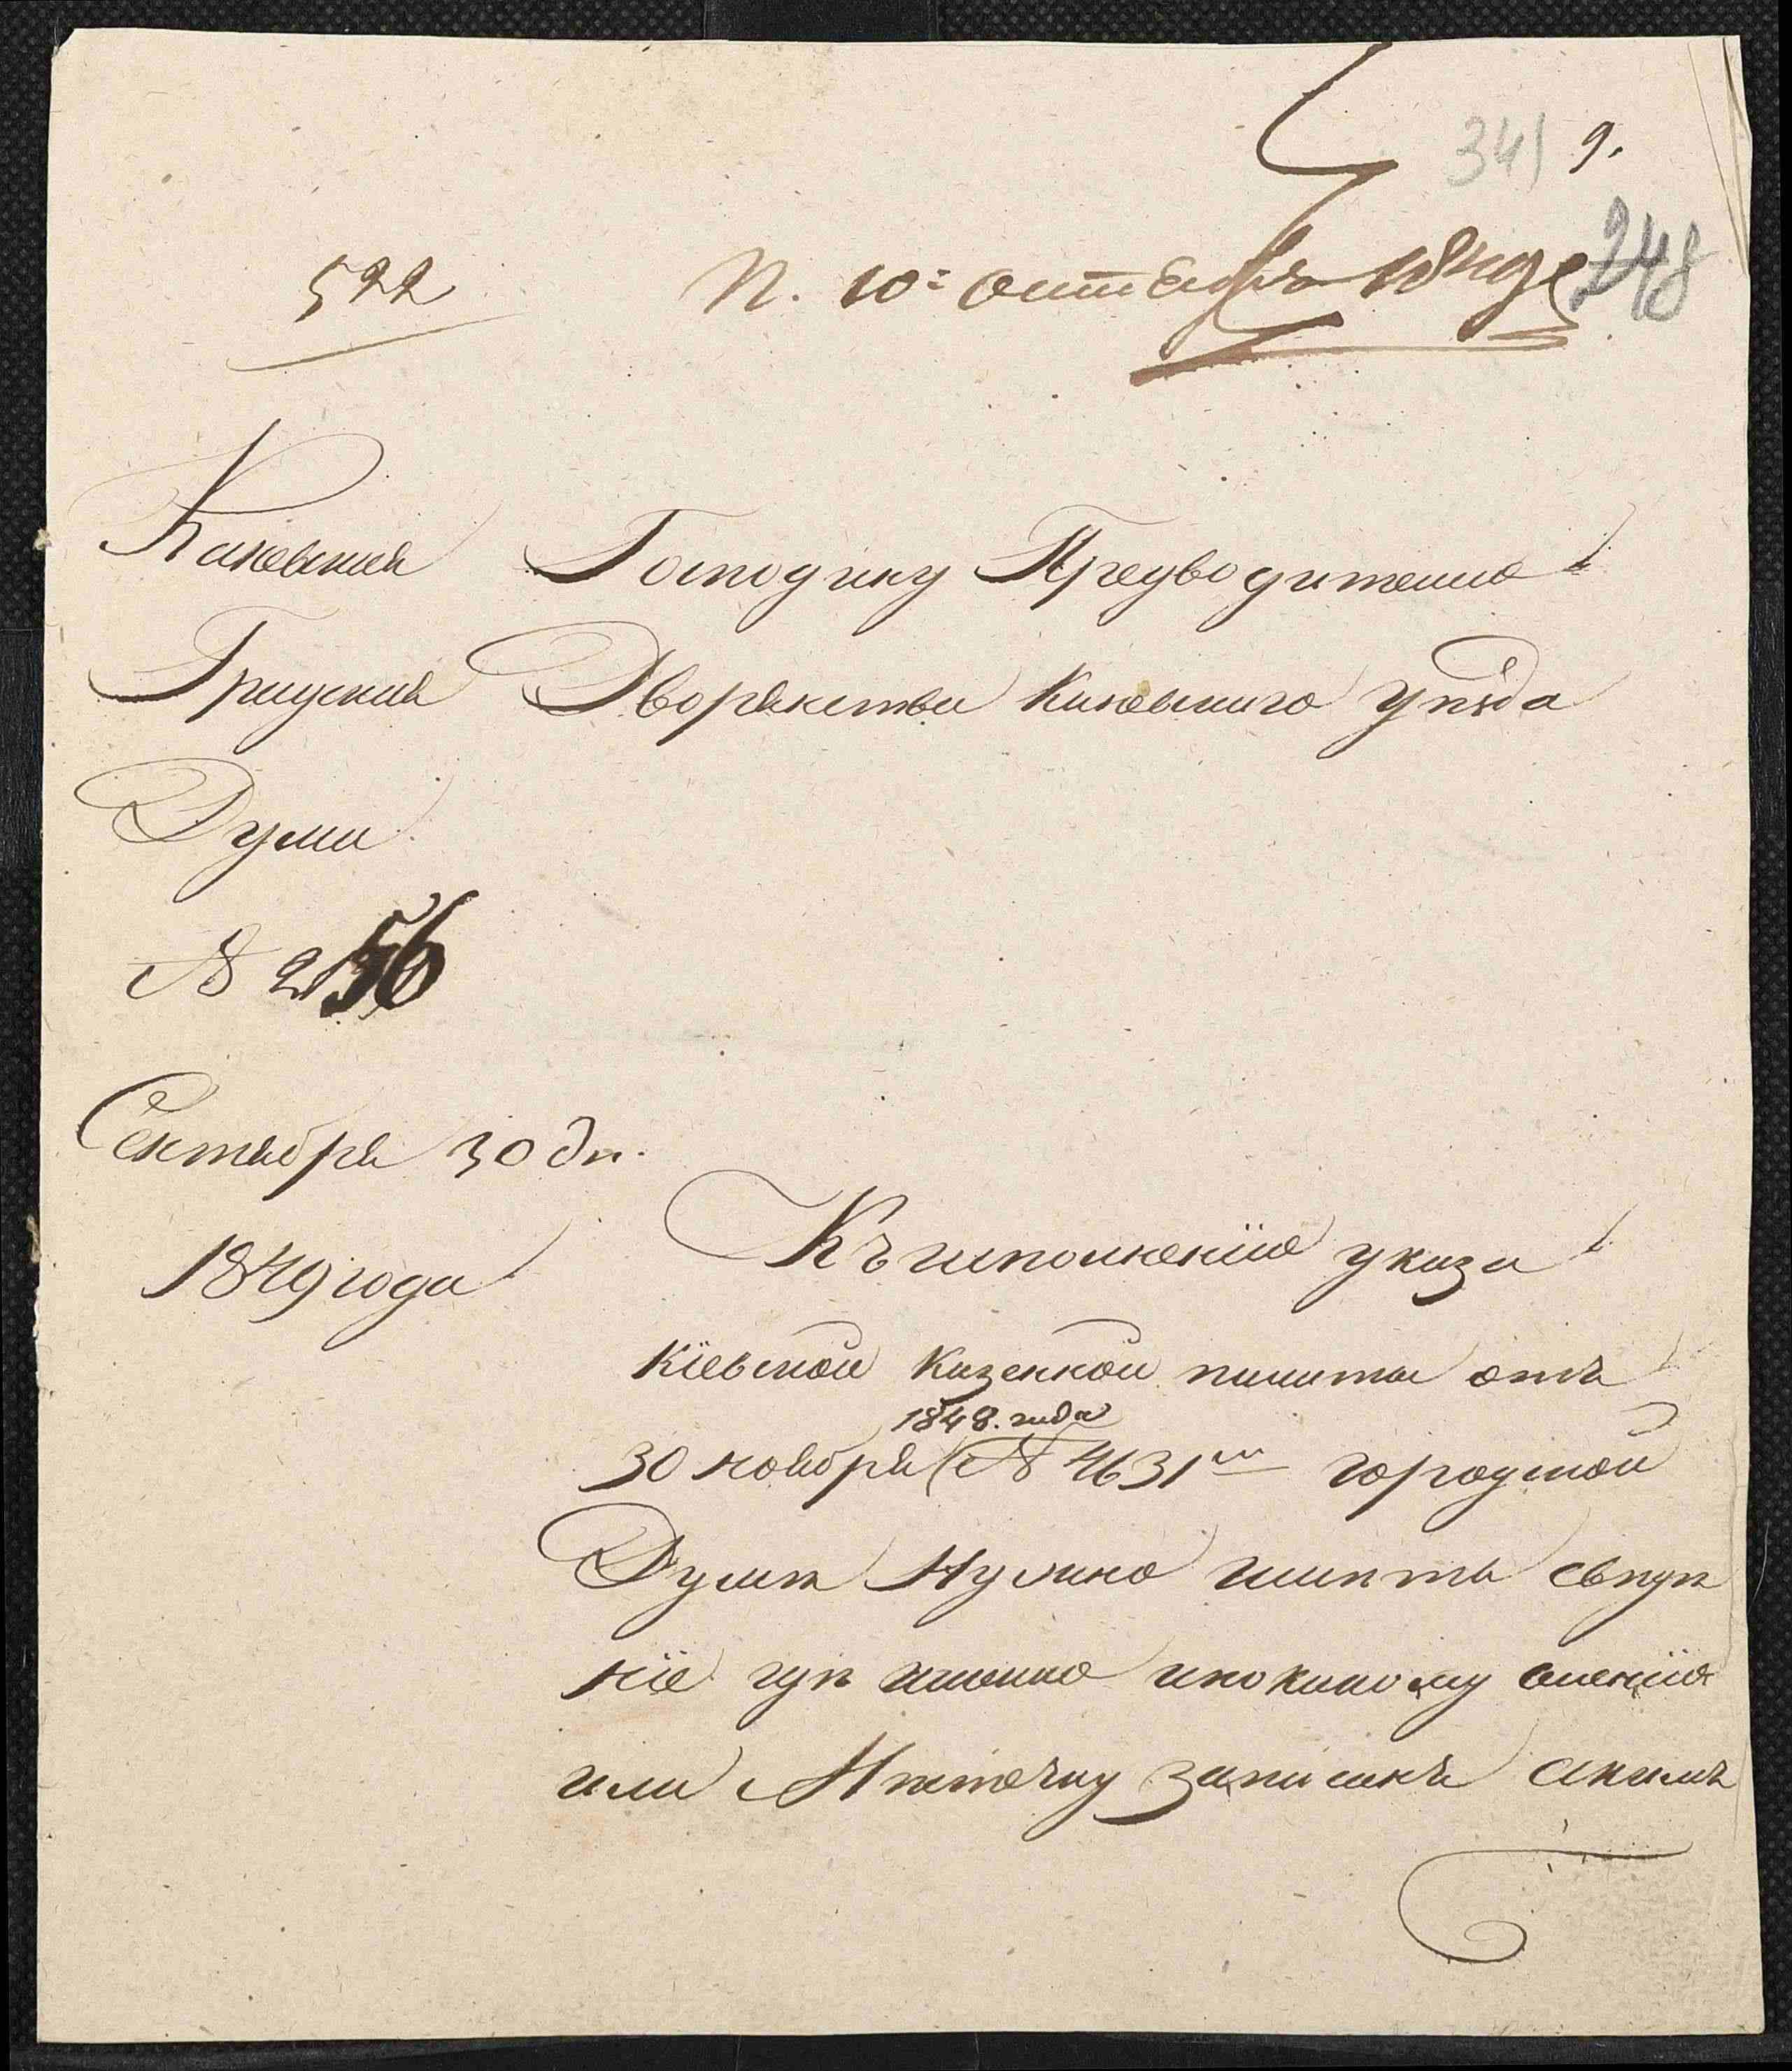 341 9.
248
522
П. 10: октября 1849 г
Каневская
Градская
Дума
№ 256
Сентября 30 дн.
1849 года
Господину Предводителю
Дворянства Каневского уѣзда
Къ исполненію указа
Кіевской Казенной палаты отъ
1848. года
30 ноября № 4631 городской
Думѣ Нужно имѣть свѣдѣ
ніе гдѣ именно и по какому
или Мѣстечку записанъ